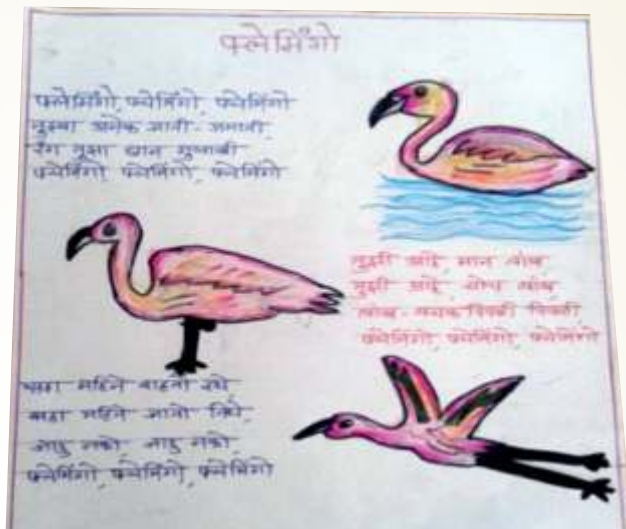 फ्लेमिंगो
फ्लेमिंगो, फ्लेमिंगो, फ्लेमिंगो
तुझ्या अनेक जाती-जमाती,
रंग तुझा छान गुलाबी
फ्लेमिंगो, फ्लेमिंगो, फ्लेमिंगो
तुझी आहे मान लांब
तुझी आहे चोच लांब
लांब
फ्लेमिंगो, फ्लेमिंगो, फ्लेमिंगो
सहा महिने राहतो इथे
सहा महिने जातो तिथे,
जाऊ नको, जाऊ नको,
फ्लेमिंगो, फ्लेमिंगो, फ्लेमिंगो